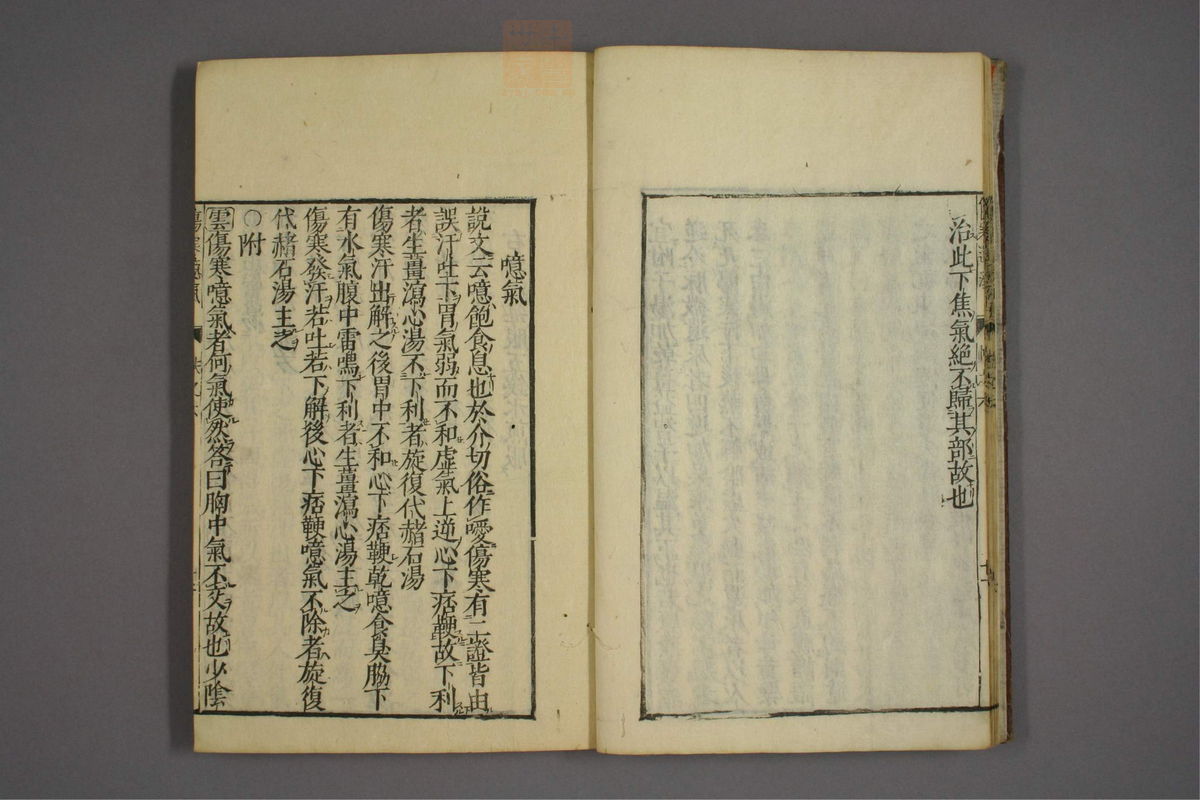 治此下焦氣絕不歸其部故也
噫氣
說文云噫飽食息也於介切俗作噯傷寒有二證皆由
誤汗吐下胃氣弱而不和虛氣上逆心下痞鞕故下利
者生薑瀉心湯不下利者旋復代赭石湯
傷寒汗出解之後胃中不和心下痞鞕乾噫食臭脇下
有水氣腹中雷鳴下利者生薑瀉心湯主之
傷寒發汗若吐若下解後心下痞鞕噫氣不除者旋復
代赭石湯主之
〇附
雲傷寒噫氣者何氣使然答曰胸中氣不交故也少陰
傷寒噫氣